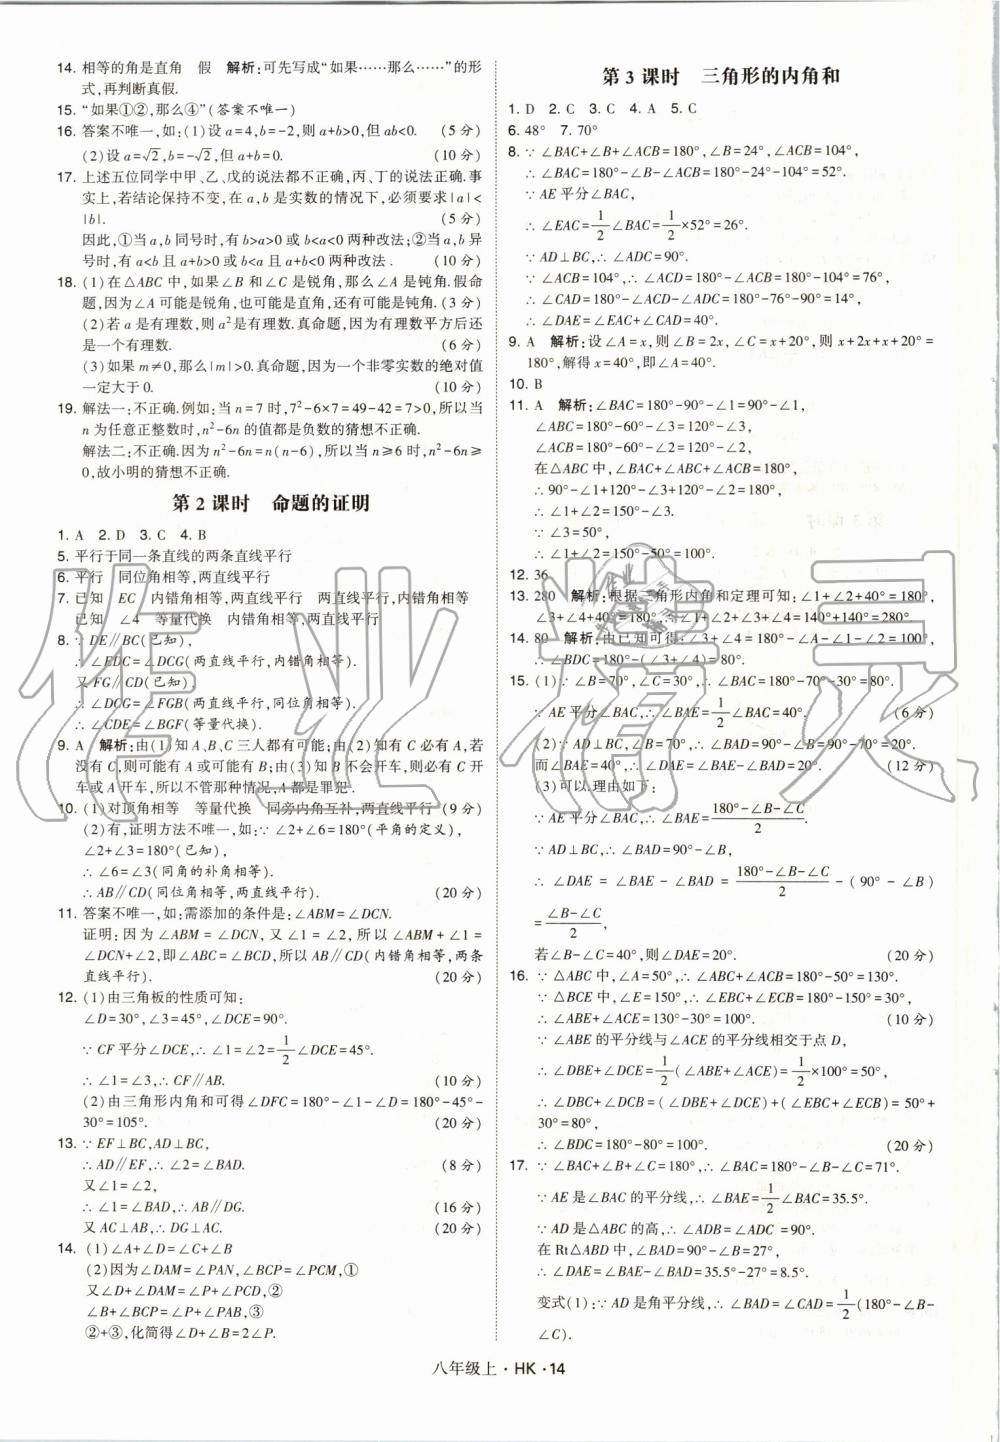 14. 相等的角是直角　假　解析:可先写成“如果……那么……”的形
式,再判断真假.
15. “如果①②,那么④”(答案不唯一)
16. 答案不唯一,如:(1)设a=4,b=-2,则a+b>0,但ab<0. (5分)
(2)设a=√2,b=-√2,但a+b=0. (10分)
17. 上述五位同学中甲、乙、戊的说法都不正确,丙、丁的说法正确.事
实上,若结论保持不变,在a,b是实数的情况下,必须要求|a|<
|b|. (5分)
因此,①当a,b同号时,有b>a>0或b<a<0两种改法;②当a,b异
号时,有a<b且a+b>0或b<a且a+b<0两种改法. (10分)
18. (1)在△ABC中,如果∠B和∠C是锐角,那么∠A是钝角.假命
题,因为∠A可能是锐角,也可能是直角,还有可能是钝角.(3分)
(2)若a是有理数,则a²是有理数.真命题,因为有理数平方后还
是一个有理数. (6分)
(3)如果m≠0,那么|m|>0.真命题,因为一个非零实数的绝对值
一定大于0. (10分)
19. 解法一:不正确.例如:当n=7时,7²-6×7=49-42=7>0,所以当
n为任意正整数时,n²-6n的值都是负数的猜想不正确.
解法二:不正确.因为n²-6n=n(n-6),所以当n≥6时,n²-6n≥
0,故小明的猜想不正确.
第2课时　命题的证明
1. A　2. D　3. C　4. B
5. 平行于同一条直线的两条直线平行
6. 平行　同位角相等,两直线平行
7. 已知　EC　内错角相等,两直线平行　两直线平行,内错角相等
已知　∠4　等量代换　内错角相等,两直线平行
8. ∵DE∥BC(已知),
∴∠EDC=∠DCG(两直线平行,内错角相等).
又FG∥CD(已知),
∴∠DCG=∠FGB(两直线平行,同位角相等).
∴∠CDE=∠BGF(等量代换).
9. A　解析:由(1)知A、B、C三人都有可能;由(2)知C必有A,若
没有C,则可能有A可能有B;由(3)知B不会开车,所以必有C开
车或A开车,所以不管那种情况,A都是罪犯.
10. (1)对顶角相等　等量代换　同旁内角互补,两直线平行(9分)
(2)有,证明方法不唯一,如:∵∠2+∠6=180°(平角的定义),
∠2+∠3=180°(已知),
∴∠6=∠3(同角的补角相等).
∴AB∥CD(同位角相等,两直线平行). (20分)
11. 答案不唯一,如:需添加的条件是:∠ABM=∠DCN.
证明:因为∠ABM=∠DCN,又∠1=∠2,所以∠ABM+∠1=
∠DCN+∠2,即∠ABC=∠BCD,所以AB∥CD(内错角相等,两条
直线平行). (20分)
12. (1)由三角板的性质可知:
∠D=30°,∠3=45°,∠DCE=90°.
∵CF平分∠DCE,∴∠1=∠2=1/2∠DCE=45°.
∴∠1=∠3,∴CF∥AB. (10分)
(2)由三角形内角和可得∠DFC=180°-∠1-∠D=180°-45°-
30°=105°. (20分)
13. ∵EF⊥BC,AD⊥BC,
∴AD∥EF,∴∠2=∠BAD. (8分)
又∠1=∠2,
∴∠1=∠BAD,∴AB∥DG. (16分)
又AC⊥AB,∴DG⊥AC. (20分)
14. (1)∠A+∠D=∠C+∠B
(2)因为∠DAM=∠PAN,∠BCP=∠PCM,①
又∠D+∠DAM=∠P+∠PCM,②
∠B+∠BCP=∠P+∠PAB,③
②+③,化简得∠D+∠B=2∠P.
第3课时　三角形的内角和
1. D　2. C　3. C　4. A　5. C
6. 48°　7. 70°
8. ∵∠BAC+∠B+∠ACB=180°,∠B=24°,∠ACB=104°,
∴∠BAC=180°-∠B-∠ACB=180°-24°-104°=52°.
∵AE平分∠BAC,
∴∠EAC=1/2∠BAC=1/2×52°=26°.
∵AD⊥BC,∴∠ADC=90°.
∵∠ACB=104°,∴∠ACD=180°-∠ACB=180°-104°=76°,
∴∠CAD=180°-∠ACD-∠ADC=180°-76°-90°=14°,
∴∠DAE=∠EAC+∠CAD=40°.
9. A　解析:设∠A=x,则∠B=2x,∠C=x+20°,则x+2x+x+20°=
180°,解得x=40°,即∠A=40°.
10. B
11. A　解析:∠BAC=180°-90°-∠1=90°-∠1,
∠ABC=180°-60°-∠3=120°-∠3,
∠ACB=180°-60°-∠2=120°-∠2,
在△ABC中,∠BAC+∠ABC+∠ACB=180°,
∴90°-∠1+120°-∠3+120°-∠2=180°,
∴∠1+∠2=150°-∠3.
∵∠3=50°,
∴∠1+∠2=150°-50°=100°.
12. 36
13. 280　解析:根据三角形内角和定理可知:∠1+∠2+40°=180°,
∠3+∠4+40°=180°,∴∠1+∠2+∠3+∠4=140°+140°=280°.
14. 80　解析:由已知可得:∠3+∠4=180°-∠A-∠1-∠2=100°,
∴∠BDC=180°-(∠3+∠4)=80°.
15. (1)∵∠B=70°,∠C=30°,∴∠BAC=180°-70°-30°=80°.
∵AE平分∠BAC,∴∠BAE=1/2∠BAC=40°. (6分)
(2)∵AD⊥BC,∠B=70°,∴∠BAD=90°-∠B=90°-70°=20°.
而∠BAE=40°,∴∠DAE=∠BAE-∠BAD=20°. (12分)
(3)可以.理由如下:
∵AE平分∠BAC,∴∠BAE=(180°-∠B-∠C)/2.
∵AD⊥BC,∴∠BAD=90°-∠B,
∴∠DAE=∠BAE-∠BAD=(180°-∠B-∠C)/2-(90°-∠B)
=(∠B-∠C)/2,
若∠B-∠C=40°,则∠DAE=20°. (20分)
16. ∵△ABC中,∠A=50°,∴∠ABC+∠ACB=180°-50°=130°.
∵△BCE中,∠E=150°,∴∠EBC+∠ECB=180°-150°=30°,
∴∠ABE+∠ACE=130°-30°=100°. (10分)
∵∠ABE的平分线与∠ACE的平分线相交于点D,
∴∠DBE+∠DCE=1/2(∠ABE+∠ACE)=1/2×100°=50°,
∴∠DBC+∠DCB=(∠DBE+∠DCE)+(∠EBC+∠ECB)=50°+
30°=80°,
∴∠BDC=180°-80°=100°. (20分)
17. ∵∠BAC+∠B+∠C=180°,∴∠BAC=180°-∠B-∠C=71°.
∵AE是∠BAC的平分线,∴∠BAE=1/2∠BAC=35.5°.
∵AD是△ABC的高,∴∠ADB=∠ADC=90°.
在Rt△ABD中,∠BAD=90°-∠B=27°,
∴∠DAE=∠BAE-∠BAD=35.5°-27°=8.5°.
变式(1):∵AD是角平分线,∴∠BAD=∠CAD=1/2(180°-∠B-
∠C).
八年级上·HK·14
作业精灵